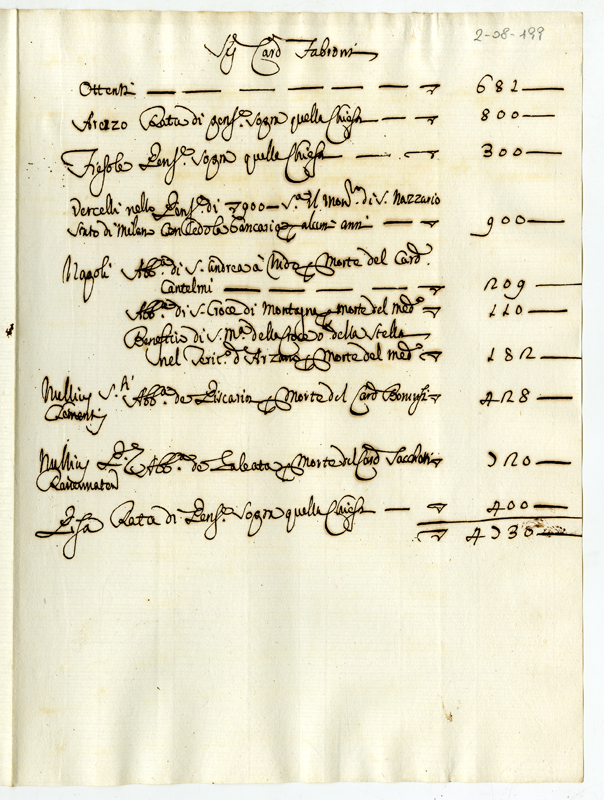 2-08-199
Sig Card Fabroni
Ottenti 682
Arezzo Rata di Pens.e sopra quella Chiesa 800
Fiesole Pens.e sopra quella Chiesa 300
Vercelli nella Pens.e di 7900 S.a il Mon.rio di S. Nazzario
Stato di Milano con Cedola bancaria p alcuni anni 900
Napoli Abb.a di S. Andrea à Nido p Morte del Card.
Cantelmi 209
Abb.a di S. Croce di Montagna p morte del med.o 110
Beneficio di S. M.a della Croce o della Stella
nel Territ.o d'Arzano p Morte del med.o 182
Nullius S.ti Abb.a de p Morte del Card 428
Clementis
Nullius Abb.a de Galeata p Morte del Card Sacchetti 920
Pisa Rata di Pens.e sopra quella Chiesa 400
4930